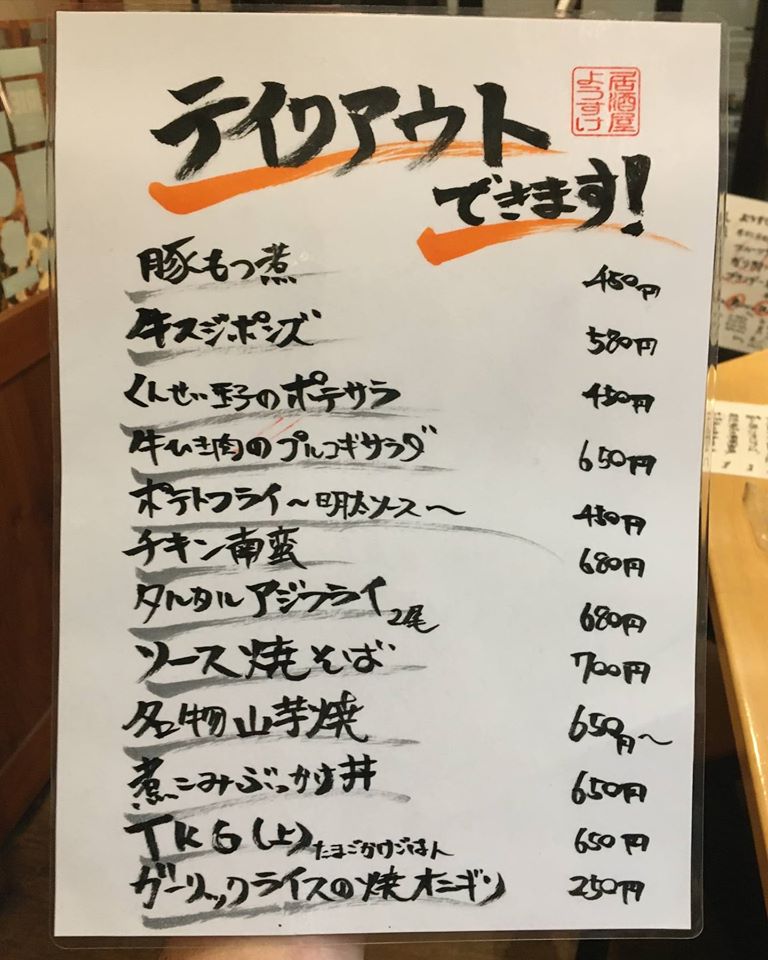 居酒屋
ようすけ
テイクアウト
できます!
豚もつ煮 450円
牛スジポンズ 580円
くんせい玉子のポテサラ 450円
牛ひき肉のプルコギサラダ 650円
ポテトフライ〜明太ソース〜 450円
チキン南蛮 680円
タルタルアジフライ 2尾 680円
ソース焼そば 700円
名物山芋焼 650円〜
煮こみぶっかけ丼 650円
TKG(上)たまごかけごはん 650円
ガーリックライスの焼オニギリ 250円